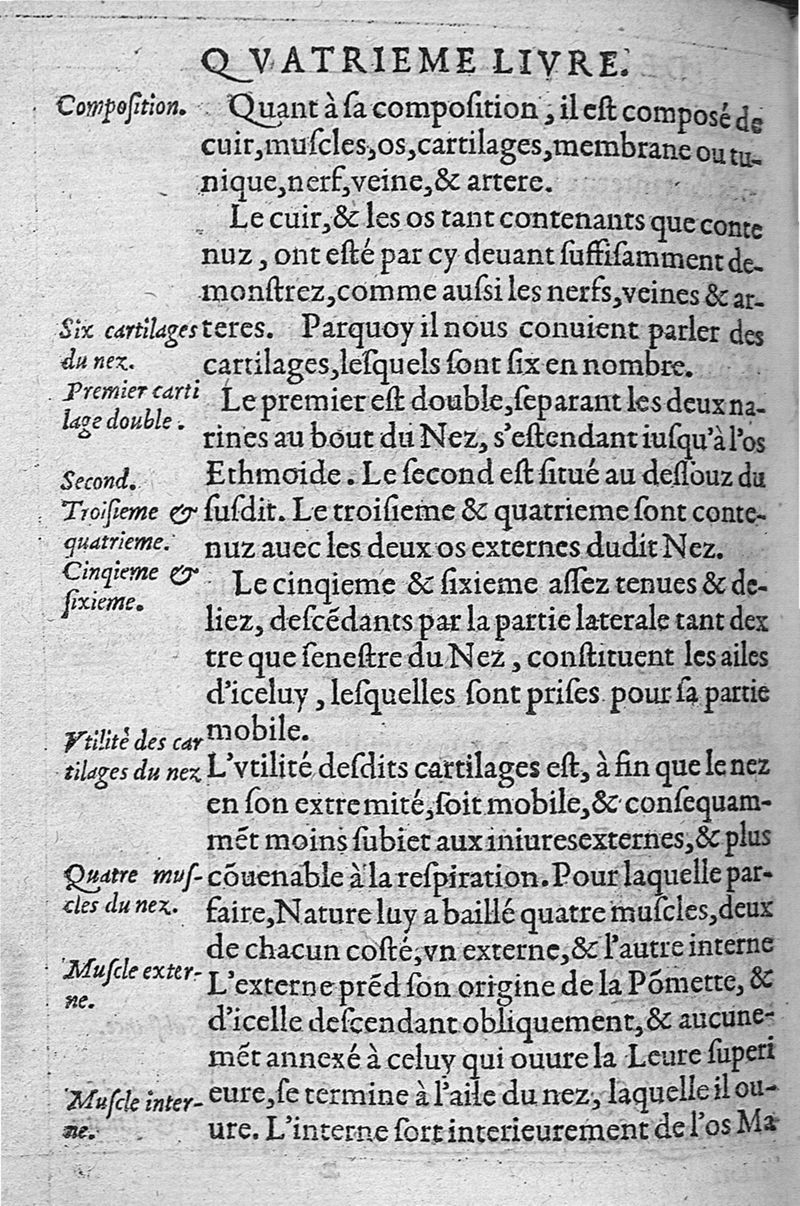 QVATRIEME LIVRE.
Composition.
Quant à ſa compoſition, il eſt composé de
cuir, muſcles, os, cartilages, membrane ou tu-
nique, nerf, veine, & artere.
Le cuir, & les os tant contenants que conte
nuz, ont eſté par cy deuant ſuffiſamment de-
monſtrez, comme auſsi les nerfs, veines & ar-
Six cartilages
du nez.
teres. Parquoy il nous conuient parler des
cartilages, leſquels ſont ſix en nombre.
Premier carti
lage double.
Le premier eſt double, ſeparant les deux na-
rines au bout du Nez, s'eſtendant iuſqu'à l'os
Second.
Ethmoide. Le ſecond eſt ſitué au deſſouz du
Troiſieme &
quatrieme.
ſuſdit. Le troiſieme & quatrieme ſont conte-
nuz auec les deux os externes dudit Nez.
Cinqieme &
ſixieme.
Le cinqieme & ſixieme aſſez tenues & de-
liez, deſcẽdants par la partie laterale tant dex
tre que ſeneſtre du Nez, conſtituent les ailes
d'iceluy, leſquelles ſont priſes pour ſa partie
mobile.
Vtilité des car
tilages du nez
L'vtilité deſdits cartilages eſt, à fin que le nez
en ſon extremité, ſoit mobile, & conſequam-
mẽt moins ſubiet aux iniures externes, & plus
Quatre muſ-
cles du nez.
cõuenable à la reſpiration. Pour laquelle par-
faire, Nature luy a baillé quatre muſcles, deux
de chacun coſté, vn externe, & l'autre interne
Muſcle exter-
ne.
L'externe prẽd ſon origine de la Põmette, &
d'icelle deſcendant obliquement, & aucune-
mẽt annexé à celuy qui ouure la Leure ſuperi
Muſcle inter-
ne.
eure, ſe termine à l'aile du nez, laquelle il ou-
ure. L'interne ſort interieurement de l'os Ma